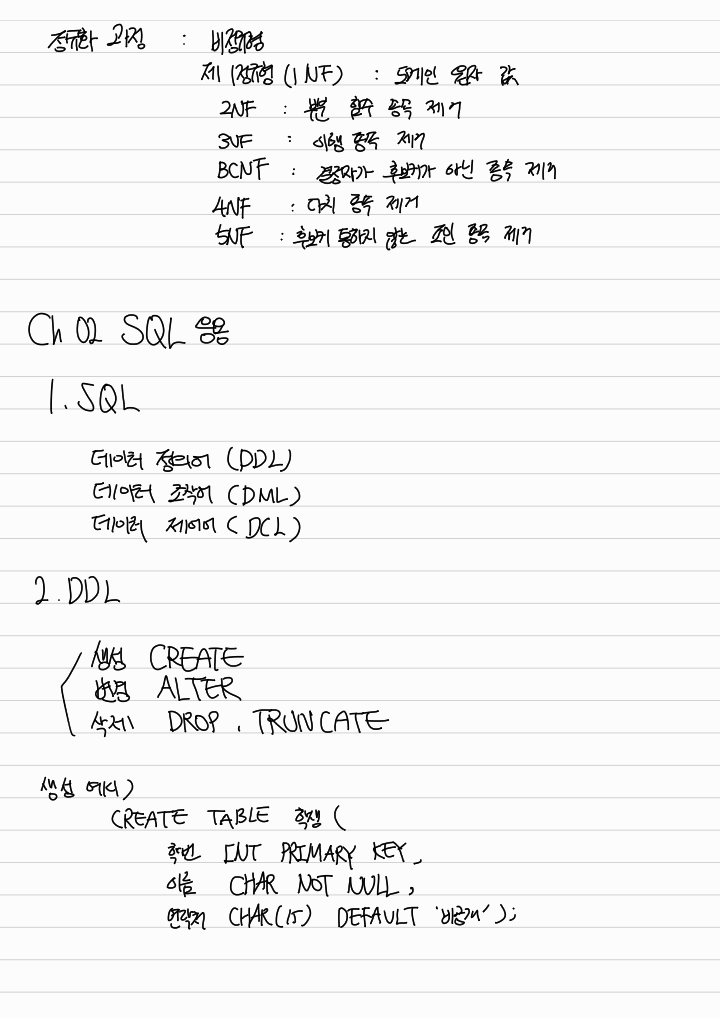 정규화 과정 : 비정규형
제 1정규형 (1NF) : 도메인 원자 값
2NF : 부분 함수 종속 제거
3NF : 이행 종속 제거
BCNF : 결정자가 후보키가 아닌 종속 제거
4NF : 다치 종속 제거
5NF : 후보키 통하지 않는 조인 종속 제거
Ch 02 SQL 응용
1. SQL
데이터 정의어 (DDL)
데이터 조작어 (DML)
데이터 제어어 (DCL)
2. DDL
생성 CREATE
변경 ALTER
삭제 DROP, TRUNCATE
생성 예시)
CREATE TABLE 학생 (
학번 INT PRIMARY KEY,
이름 CHAR NOT NULL,
연락처 CHAR(15) DEFAULT '비공개');